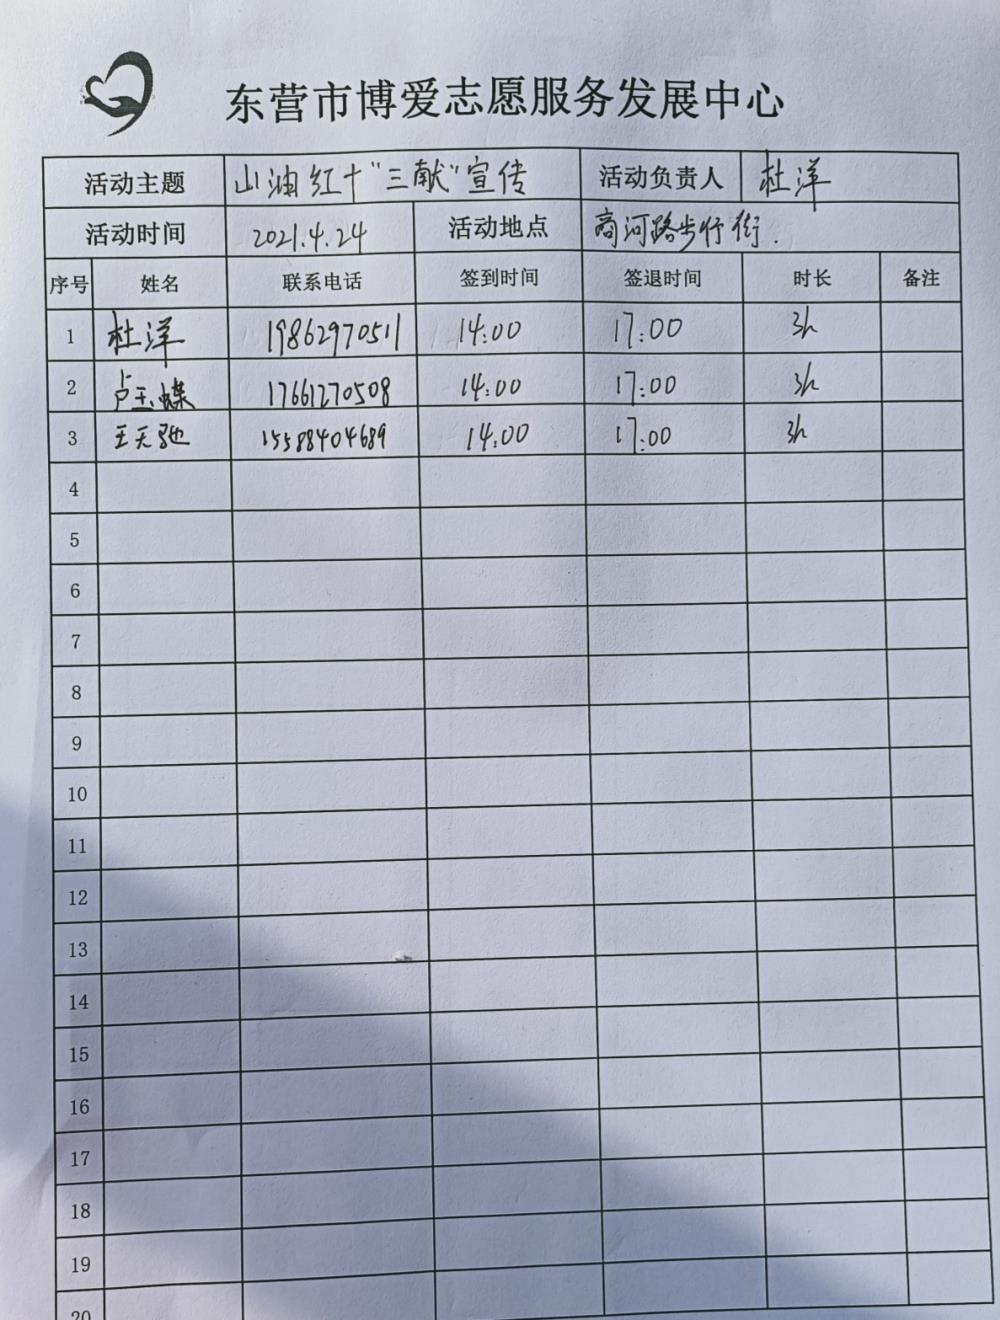 东营市博爱志愿服务发展中心
活动主题 山油红十"三献"宣传 活动负责人 杜洋
活动时间 2021.4.24 活动地点 商河路步行街.
序号 姓名 联系电话 签到时间 签退时间 时长 备注
1 杜洋 19862970511 14:00 17:00 3h
2 卢玉蝶 17661270508 14:00 17:00 3h
3 王天驰 15588404689 14:00 17:00 3h
4
5
6
7
8
9
10
11
12
13
14
15
16
17
18
19
20